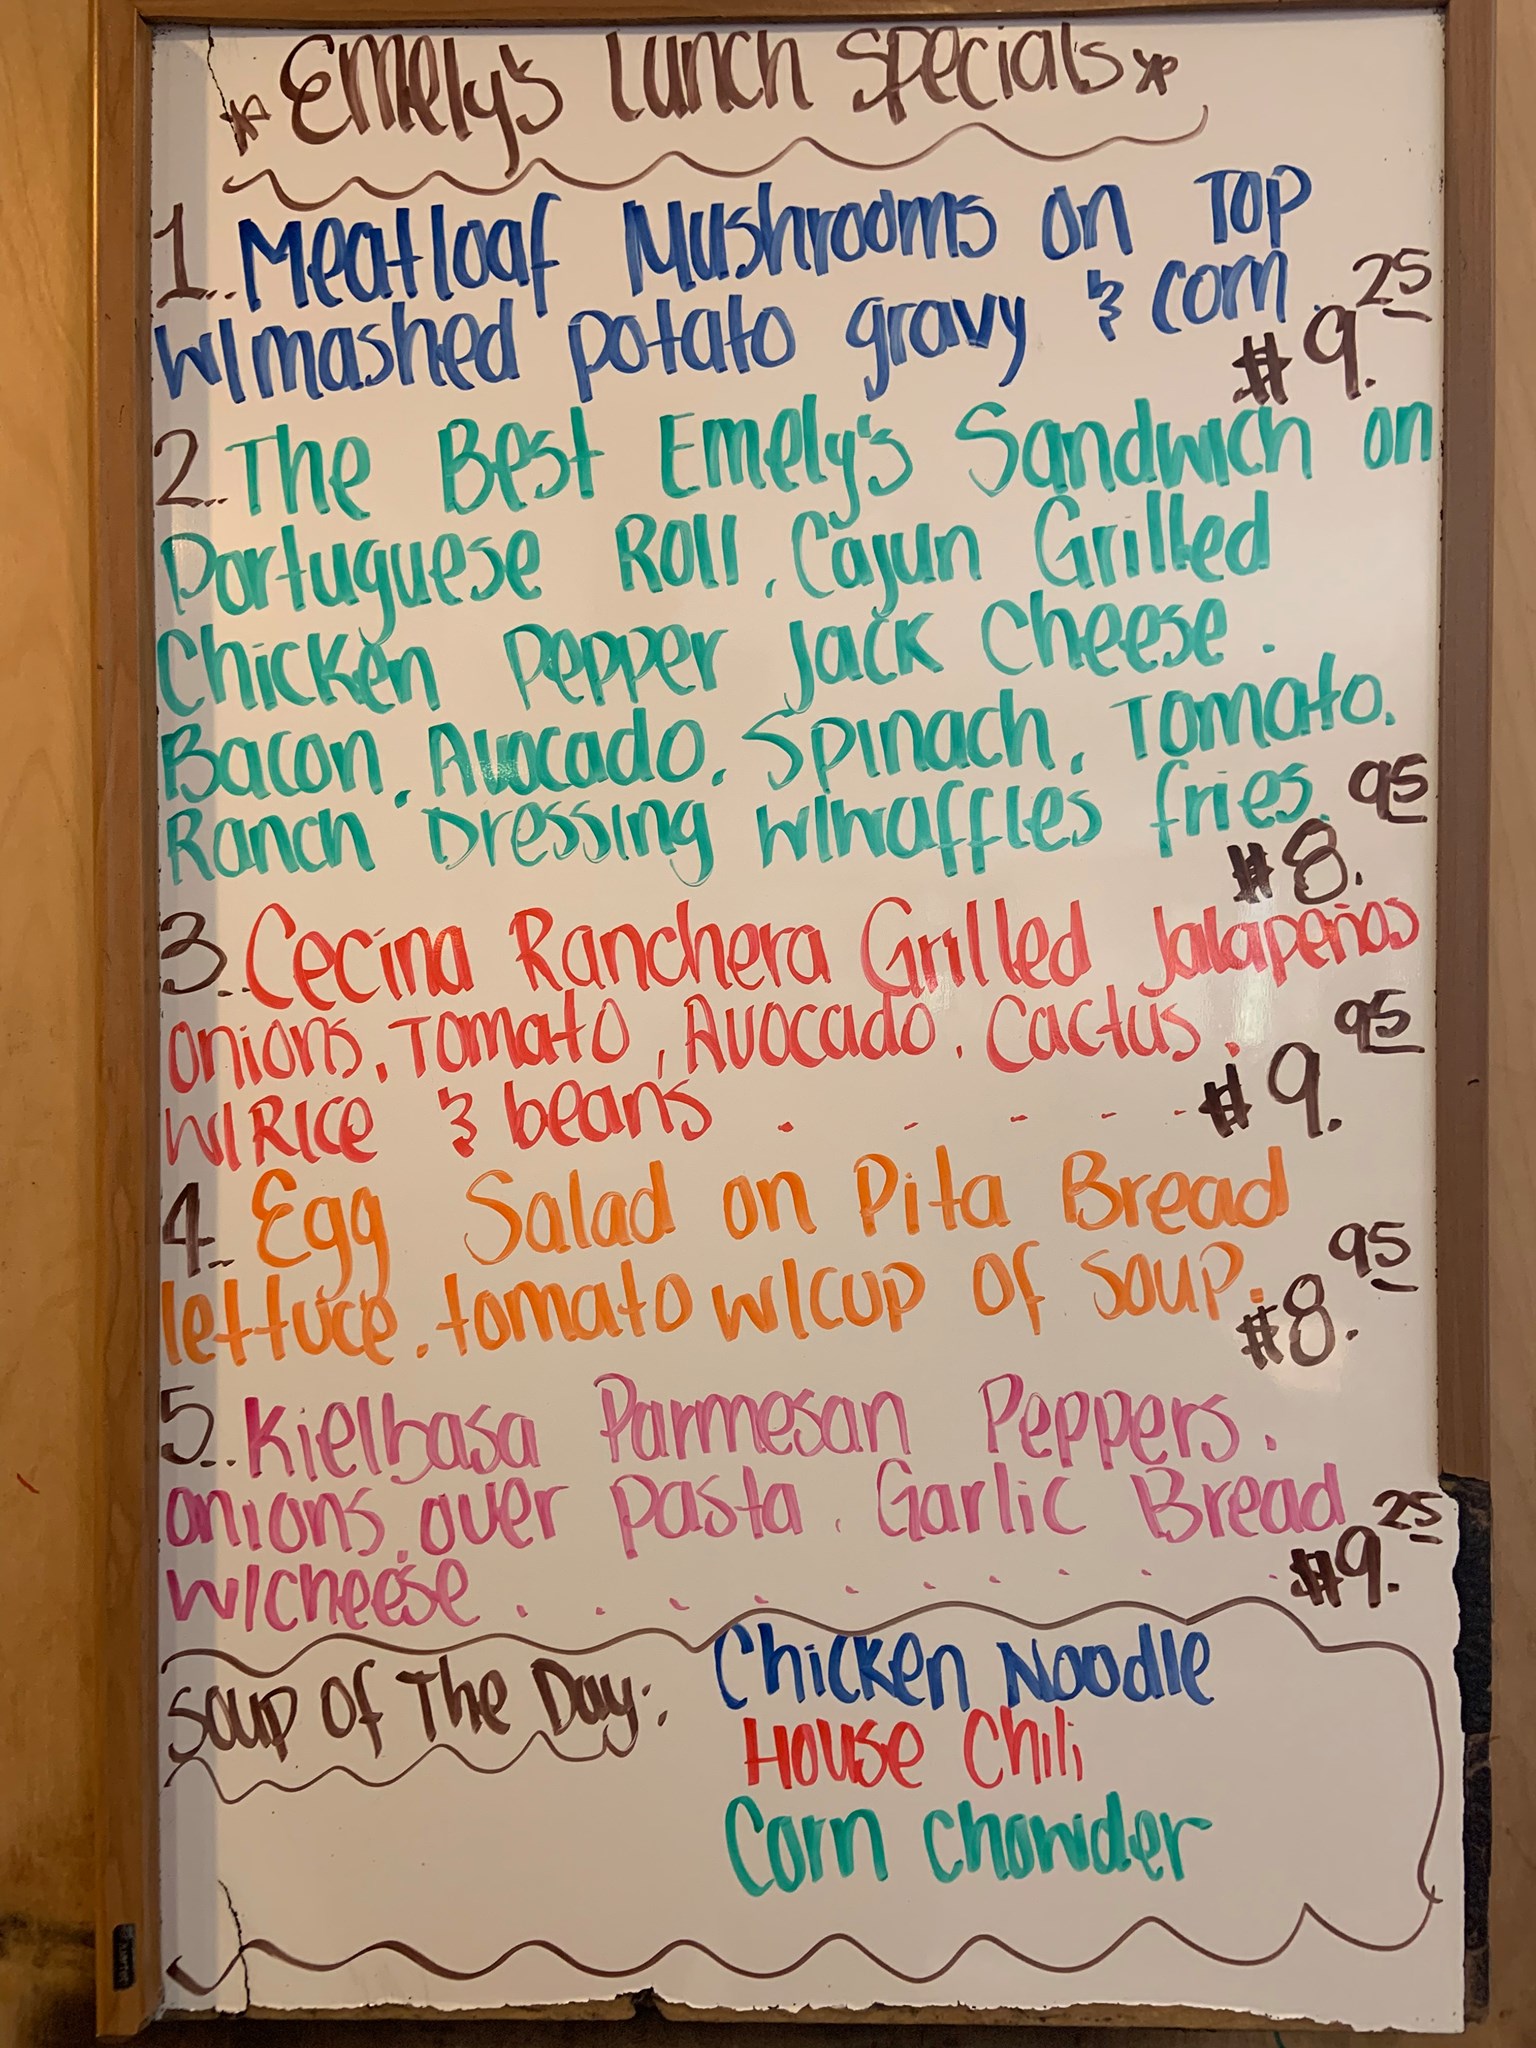 *Emely's Lunch Specials*
1..Meatloaf Mushrooms on Top
w/mashed potato gravy & corn $9.25
2..The Best Emely's Sandwich on
Portuguese Roll, Cajun Grilled
Chicken Pepper Jack Cheese.
Bacon, Avocado, Spinach, Tomato.
Ranch Dressing w/waffles fries. $8.95
3..Cecina Ranchera Grilled Jalapeños
onions, Tomato, Avocado, Cactus.
w/Rice & beans . . . . . $9.95
4..Egg Salad on Pita Bread
lettuce, tomato w/cup of soup. $8.95
5..Kielbasa Parmesan Peppers.
onions, over pasta, Garlic Bread
w/cheese . . . . . . . . . . $9.25
Soup Of The Day: Chicken Noodle
House Chili
Corn Chowder